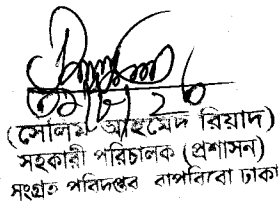 (সেলিম আহমেদ রিয়াদ)
সহকারী পরিচালক (প্রশাসন)
সংগ্রহ পরিদপ্তর বাপবিবো ঢাকা